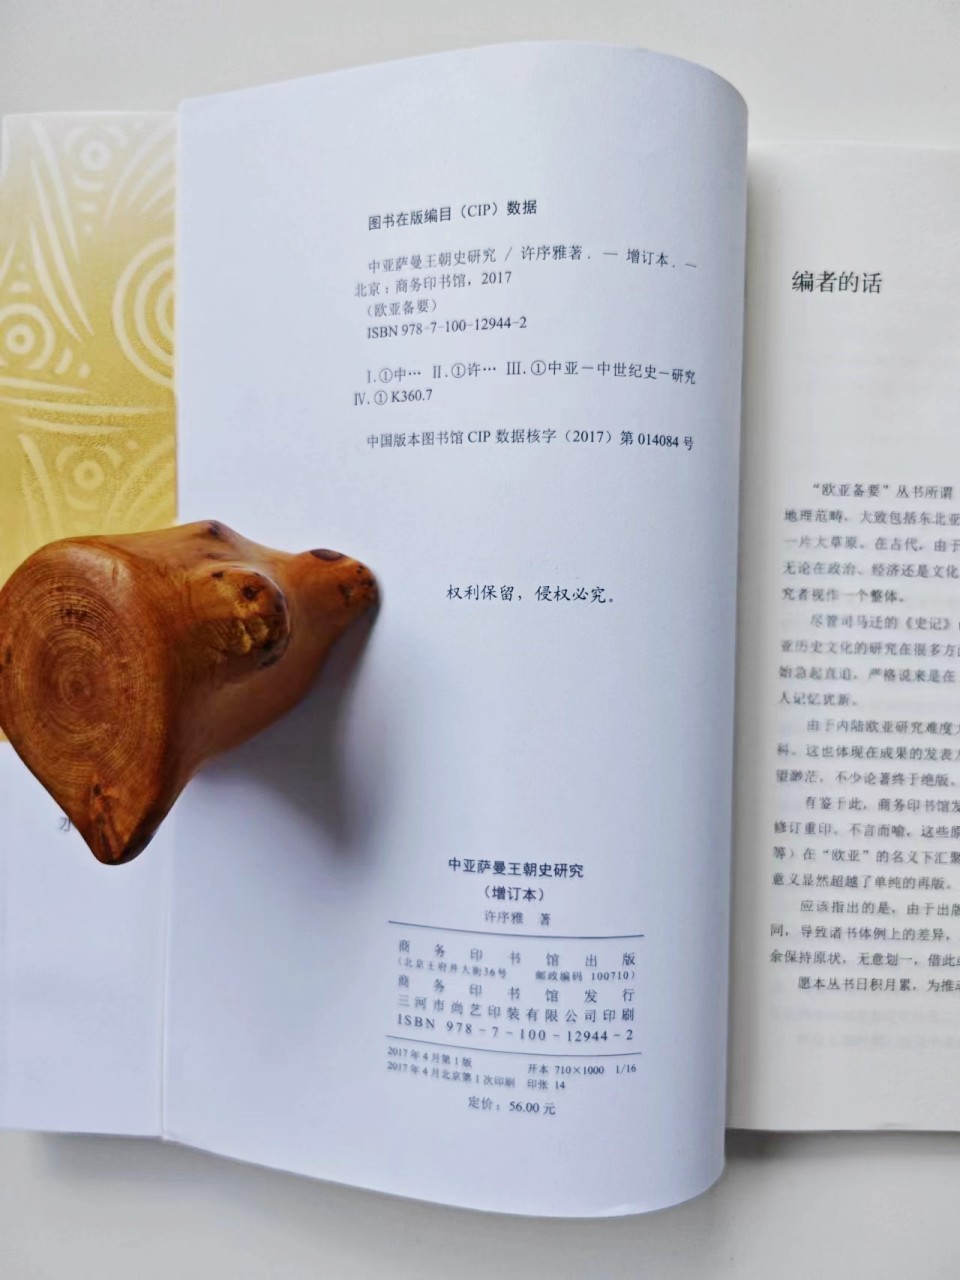 图书在版编目（CIP）数据
中亚萨曼王朝史研究 / 许序雅著. — 增订本. —
北京：商务印书馆，2017
（欧亚备要）
ISBN 978-7-100-12944-2
Ⅰ.①中… Ⅱ.①许… Ⅲ.①中亚－中世纪史－研究
Ⅳ.①K360.7
中国版本图书馆 CIP 数据核字（2017）第 014084 号
权利保留，侵权必究。
中亚萨曼王朝史研究
（增订本）
许序雅 著
商务印书馆出版
（北京王府井大街36号 邮政编码 100710）
商务印书馆发行
三河市尚艺印装有限公司印刷
ISBN 978-7-100-12944-2
2017年4月第1版 开本 710×1000 1/16
2017年4月北京第1次印刷 印张 14
定价：56.00 元
编者的话
“欧亚备要”丛书所谓
地理范畴，大致包括东北亚
一片大草原。在古代，由于
无论在政治、经济还是文化
究者视作一个整体。
尽管司马迁的《史记》
亚历史文化的研究在很多方
始急起直追，严格说来是在
人记忆犹新。
由于内陆欧亚研究难度
科。这也体现在成果的发表
望渺茫，不少论著终于绝版。
有鉴于此，商务印书馆发
修订重印。不言而喻，这些原
等）在“欧亚”的名义下汇聚
意义显然超越了单纯的再版。
应该指出的是，由于出版
同，导致诸书体例上的差异，
余保持原状，无意划一，借此
愿本丛书日积月累，为推动